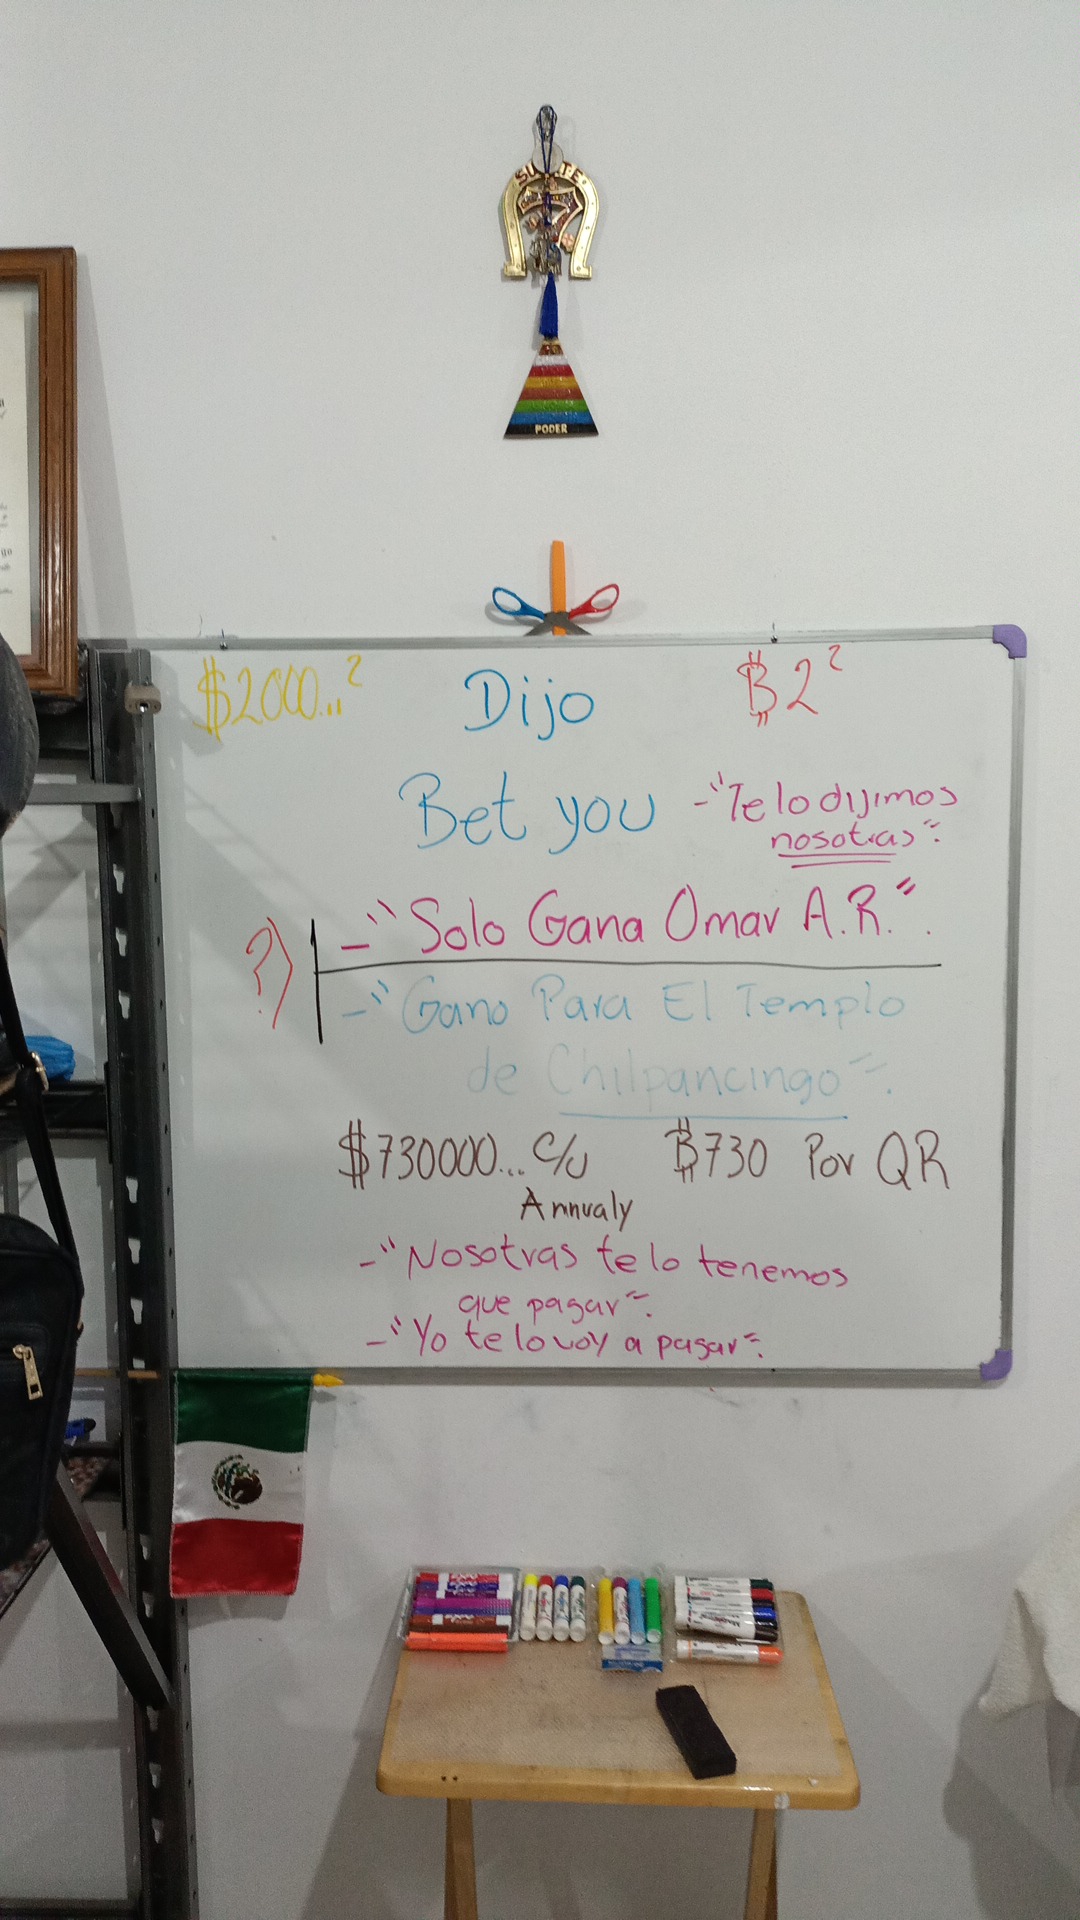 7
PODER
$2000...² Dijo ₿2²
Bet you -"Te lo dijimos
nosotras".
?) -"Solo Gana Omar A.R.".
-"Gano Para El Templo
de Chilpancingo".
$730000... c/u ₿730 Por QR
Annualy
-"Nosotras te lo tenemos
que pagar".
-"Yo te lo voy a pagar".